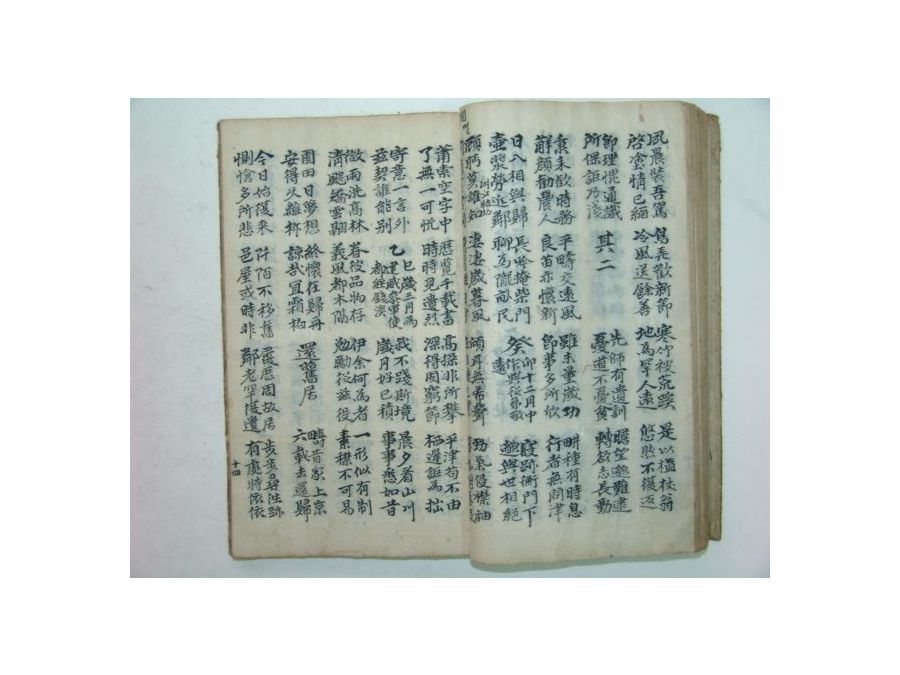 夙晨裝吾駕啓塗情已緬 鳥哢歡新節冷風送餘善 寒竹被荒蹊地爲罕人遠 是以植杖翁悠然不復返
即理愧通識所保詎乃淺 其二 先師有遺訓憂道不憂貧 瞻望邈難逮轉欲志長勤
秉耒歡時務解顔勸農人 平疇交遠風良苗亦懷新 雖未量歲功即事多所欣 耕種有時息行者無問津
日入相與歸壺漿勞近鄰 長吟掩柴門聊爲隴畝民 癸卯十二月中作與從弟敬遠 寢跡衡門下邈與世相絶
顧眄莫誰知 凄凄歲暮風 傾耳無希聲 勁氣侵襟袖
蕭索空宇中了無一可悦 歷覽千載書時時見遺烈 高操非所攀深得固窮節 平津苟不由栖遲詎爲拙
寄意一言外茲契誰能別 乙巳歲三月爲建威參軍使都經錢溪 我不踐斯境歲月好已積 晨夕看山川事事悉如昔
微雨洗高林清飇矯雲翮 眷彼品物存義風都未隔 伊余何爲者勉勵從茲役 一形似有制素襟不可易
園田日夢想安得久離析 終懷在歸舟諒哉宜霜柏 還舊居 疇昔家上京六載去還歸
今日始復來惻愴多所悲 阡陌不移舊邑屋或時非 履歷周故居鄰老罕復遺 步步尋往跡有處特依依
十四